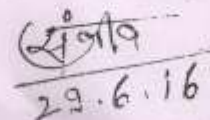 संजीव
29.6.16